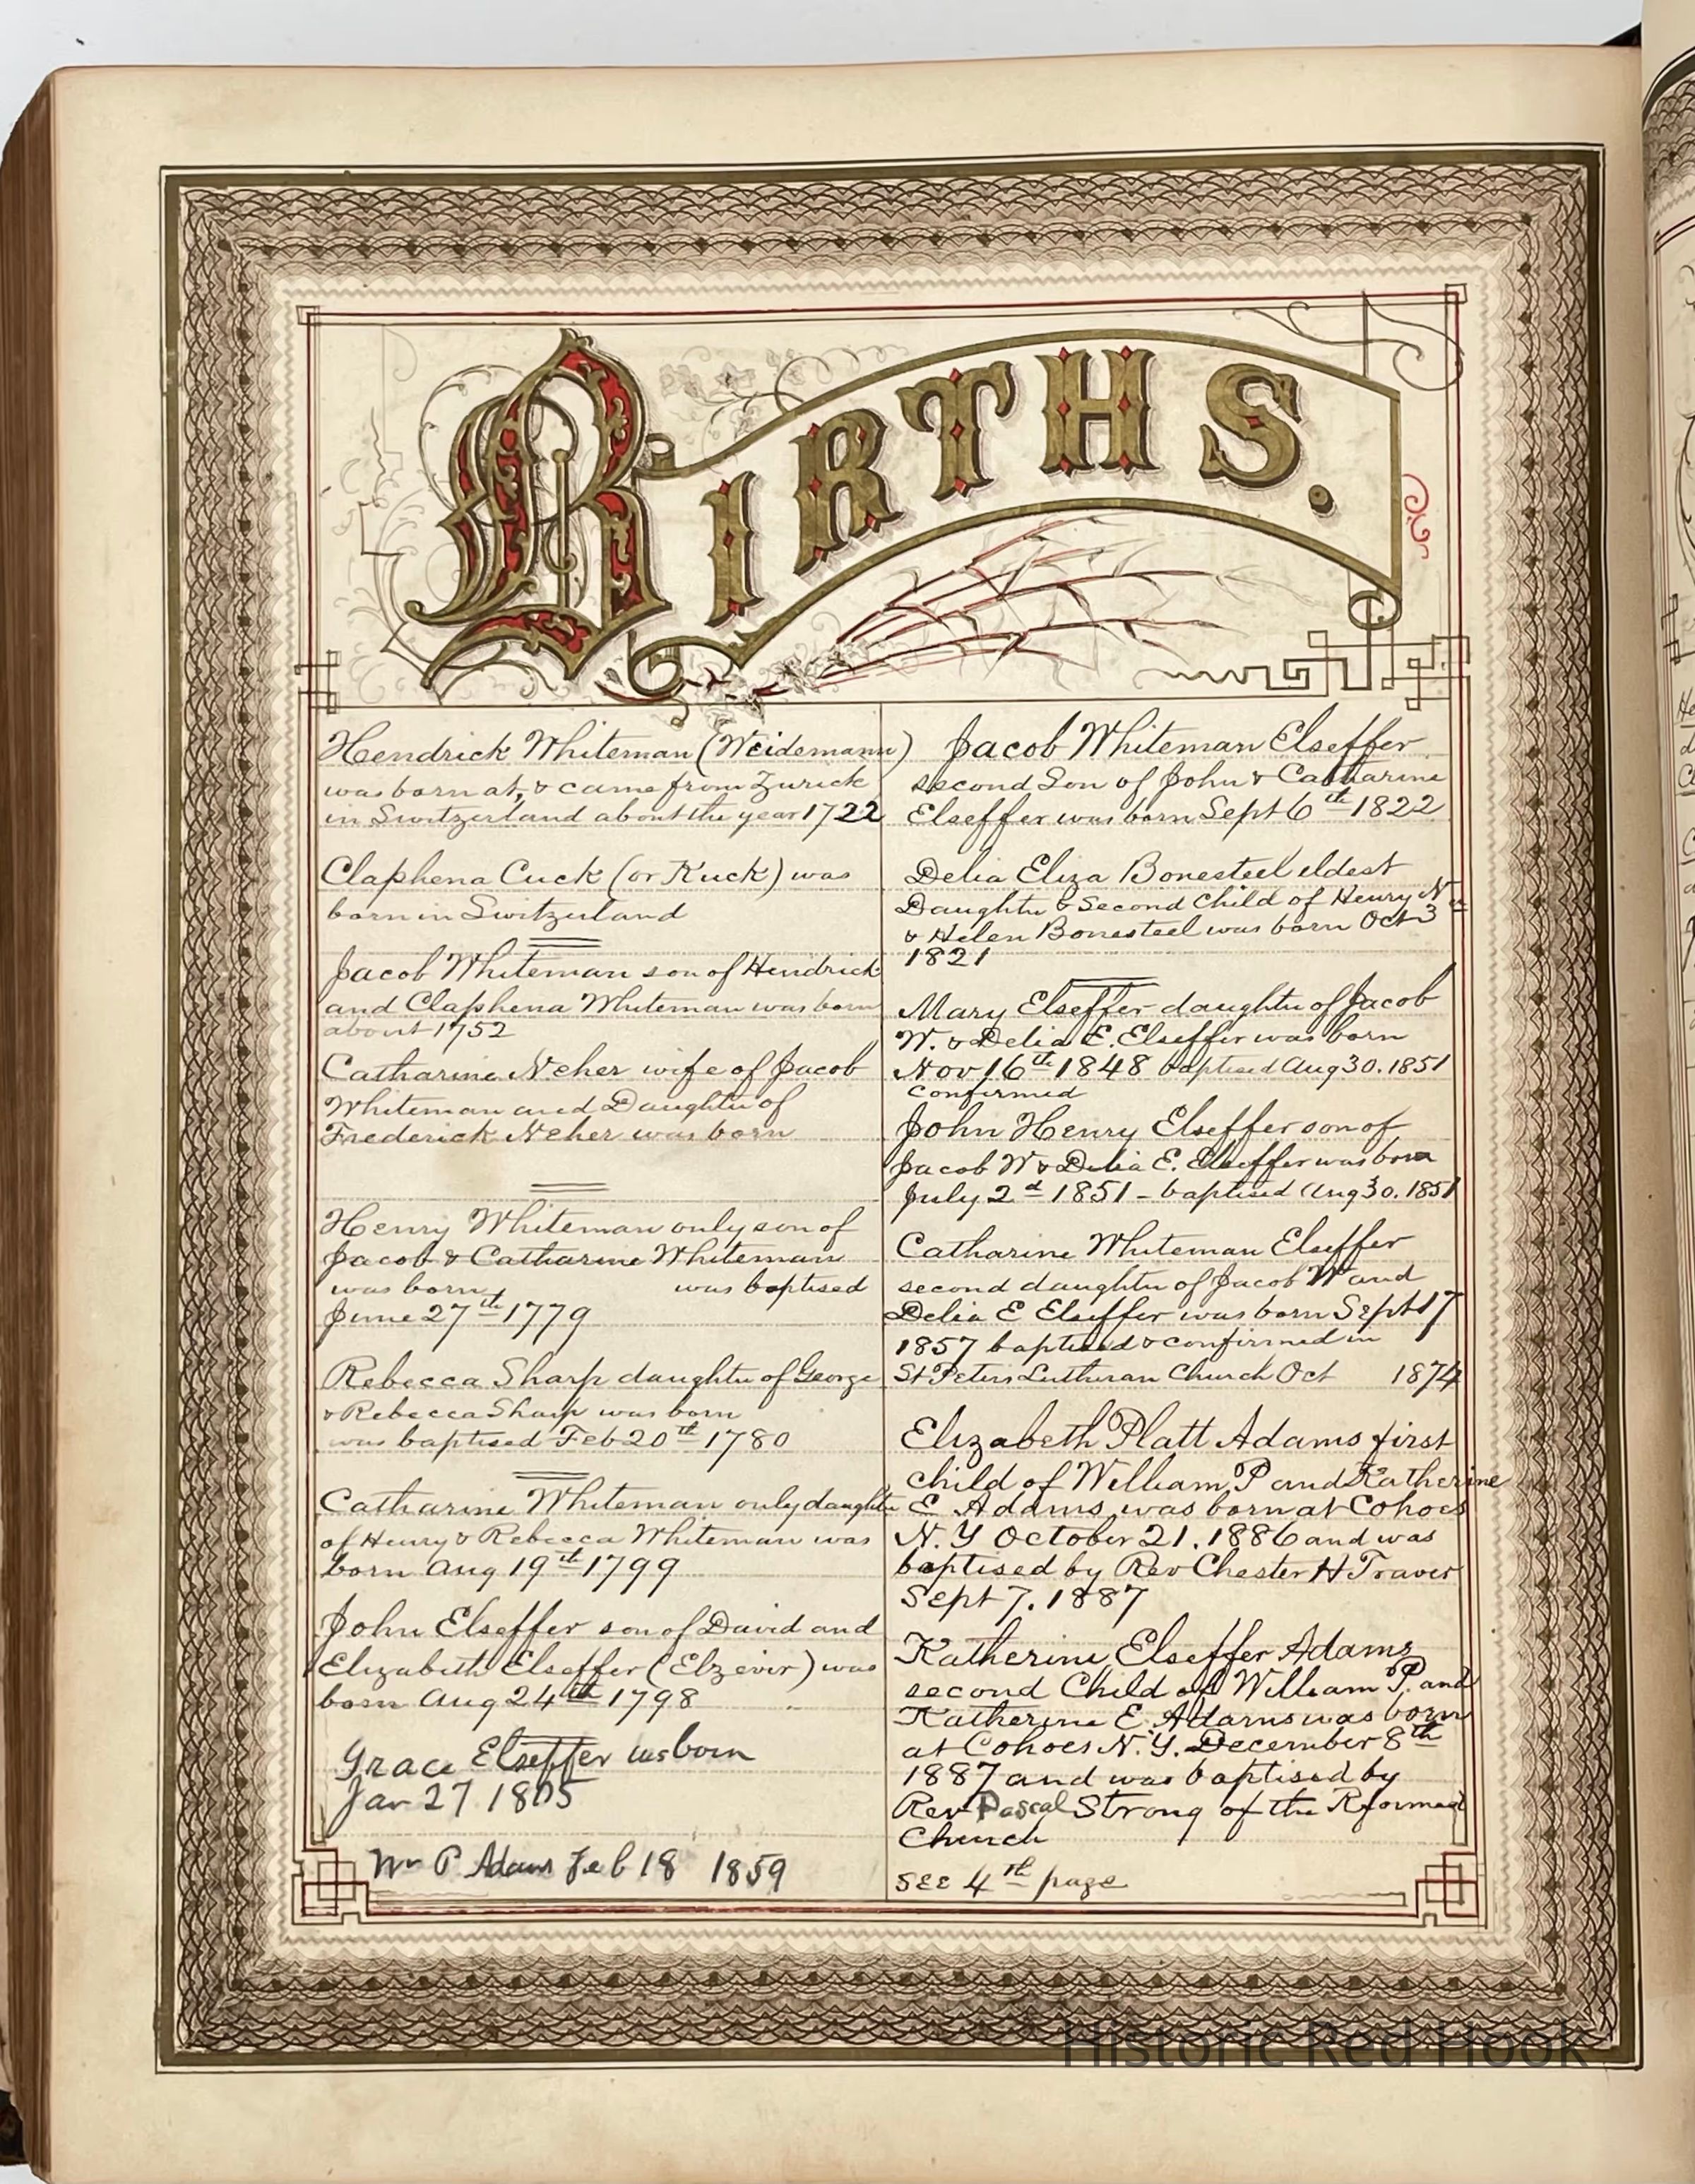 BIRTHS.
Hendrick Whiteman (Weidemann)
was born at, & came from Zurick
in Switzerland about the year 1722
Claphena Cuck (or Kuck) was
born in Switzerland
Jacob Whiteman son of Hendrick
and Claphena Whiteman was born
about 1752
Catharine Neher wife of Jacob
Whiteman and Daughter of
Frederick Neher was born
Henry Whiteman only son of
Jacob & Catharine Whiteman
was born was baptised
June 27th 1779
Rebecca Sharp daughter of George
& Rebecca Sharp was born
was baptised Feb 20th 1780
Catharine Whiteman only daughter
of Henry & Rebecca Whiteman was
born Aug 19th 1799
John Elseffer son of David and
Elizabeth Elseffer (Elzevir) was
born Aug 24th 1798
Grace Elseffer was born
Jan 27
Wm P. Adams Feb 18 1859
Jacob Whiteman Elseffer
second Son of John & Catharine
Elseffer was born Sept 6th 1822
Delia Eliza Bonesteel eldest
Daughter & Second Child of Henry N
& Helen Bonesteel was born Oct 3
1821
Mary Elseffer daughter of Jacob
W. & Delia E. Elseffer was born
Nov 16th 1848 baptised Aug 30. 1851
confirmed
John Henry Elseffer son of
Jacob W & Delia E. Elseffer was born
July 2d 1851 - baptised Aug 30. 1851
Catharine Whiteman Elseffer
second daughter of Jacob W and
Delia E Elseffer was born Sept 17
1857 baptised & confirmed in
St Peters Lutheran Church Oct 1874
Elizabeth Platt Adams first
child of William P and Katherine
E Adams was born at Cohoes
N.Y October 21. 1886 and was
baptised by Rev Chester H Traver
Sept 7. 1887
Katherine Elseffer Adams
second Child of William P. and
Katherine E. Adams was born
at Cohoes N.Y. December 8th
1887 and was baptised by
Rev Pascal Strong of the Reformed
Church
SEE 4th page
Historic Red Hook